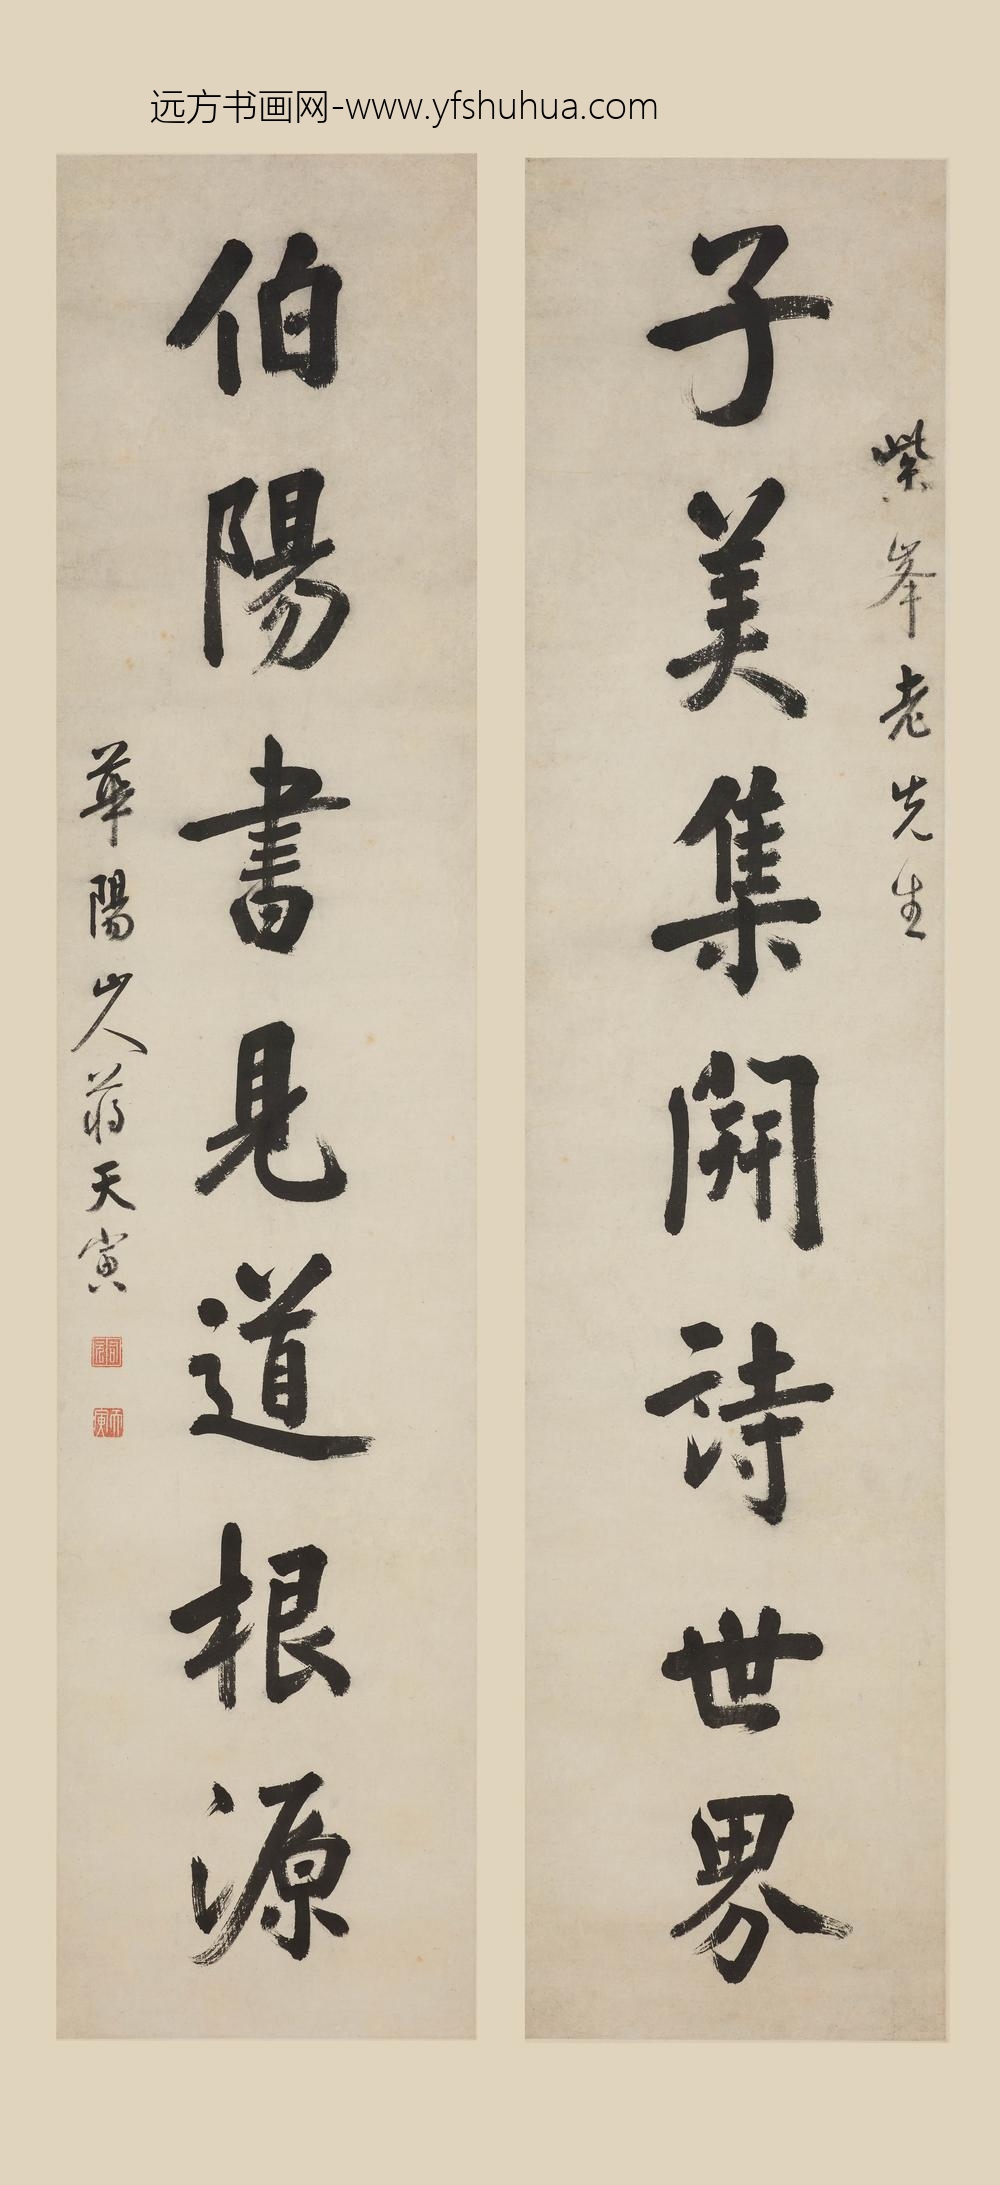 远方书画网-www.yfshuhua.com
紫峯老先生
子美集開詩世界
伯陽書見道根源
華陽山人蔣天寅